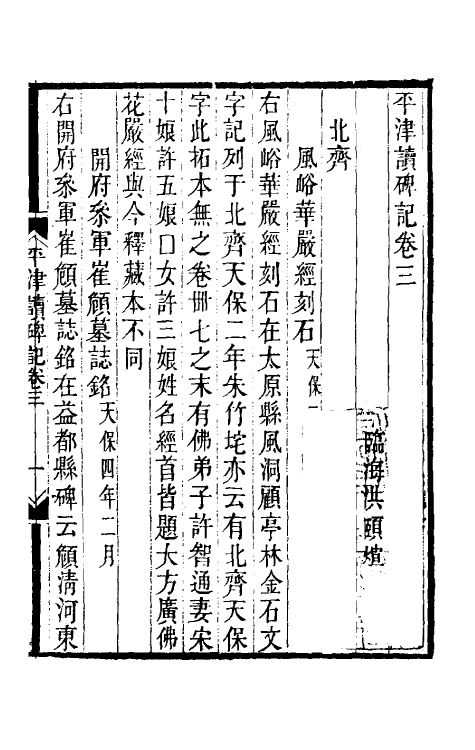 平津讀碑記卷三
臨海洪頤煊
北齊
風峪華嚴經刻石天保二
右風峪華嚴經刻石在太原縣風洞顧亭林金石文
字記列于北齊天保二年朱竹垞亦云有北齊天保
字此拓本無之卷卌七之末有佛弟子許智通妻宋
十娘許五娘口女許三娘姓名經首皆題大方廣佛
花嚴經與今釋藏本不同
開府叅軍崔頠墓誌銘天保四年二月
右開府叅軍崔頠墓誌銘在益都縣碑云頠清河東
平津讀碑記卷三 一